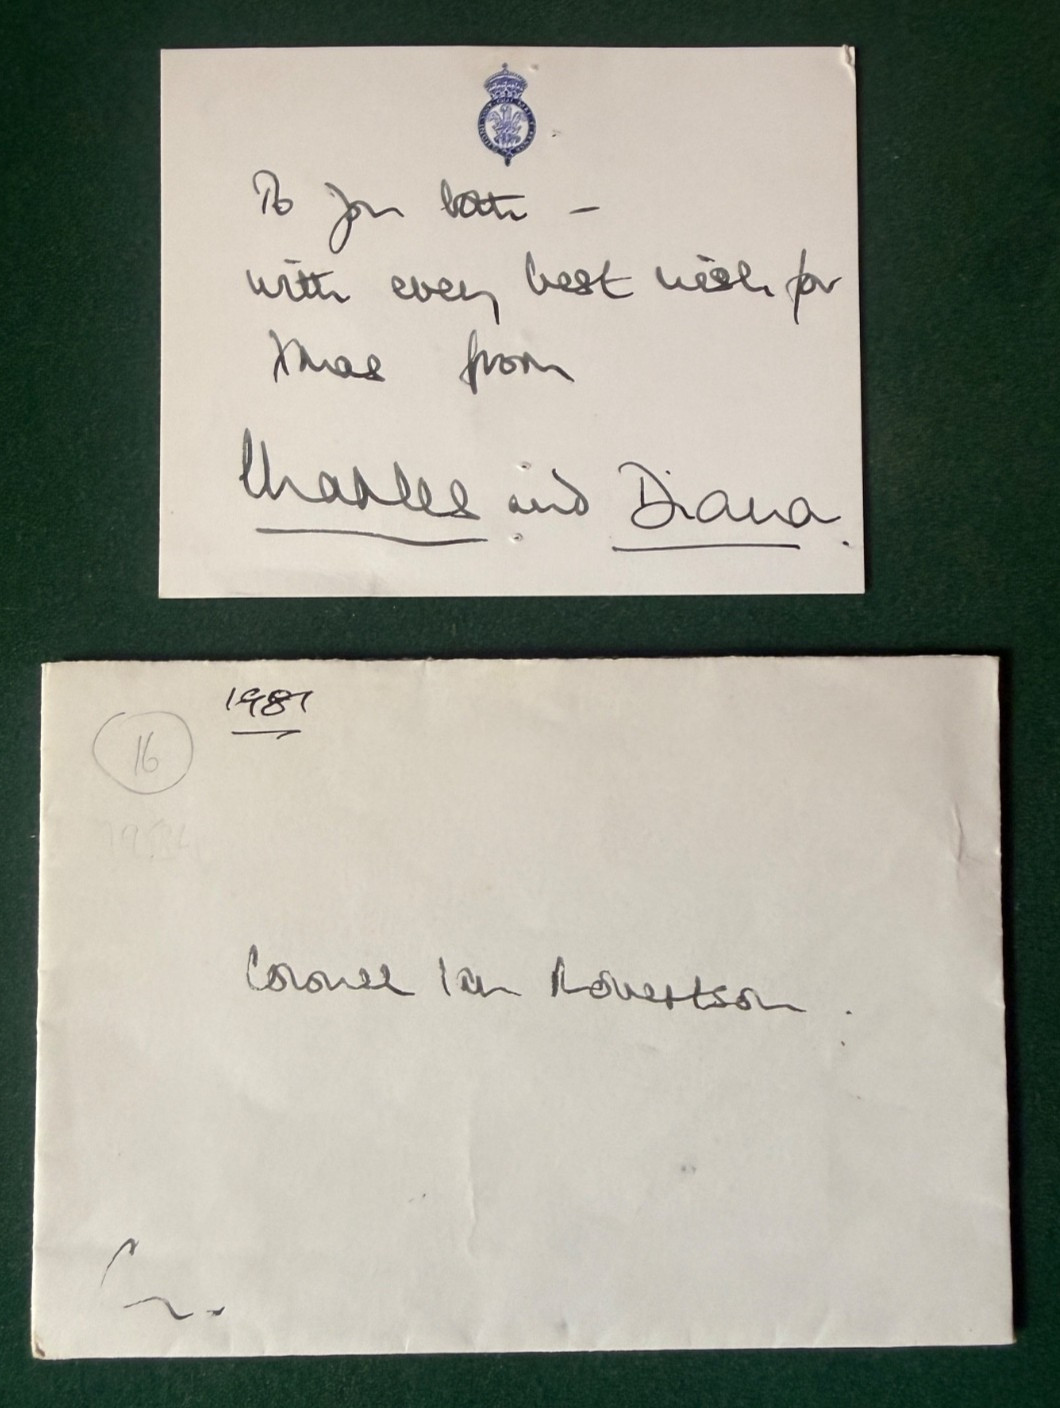 To you both –
with every best wish for
Xmas from
Charles and Diana.
1981
16
Colonel Ian Robertson.